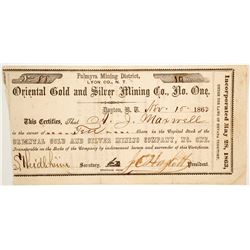 Palmyra Mining District,
LYON CO., N. T.
No. 17
10
Oriental Gold and Silver Mining Co., No. One.
Dayton, N. T. Nov. 10 1862
This Certifies, That A. J. Maxwell
is the owner Ten Shares in the Capital Stock of the
ORIENTAL GOLD AND SILVER MINING COMPANY, NO. ONE.
Transferable on the Books of the Company by endorsement hereon and surrender of this Certificate.
Secretary.
President.
Incorporated May 28, 1862,
UNDER THE LAWS OF NEVADA TERRITORY.